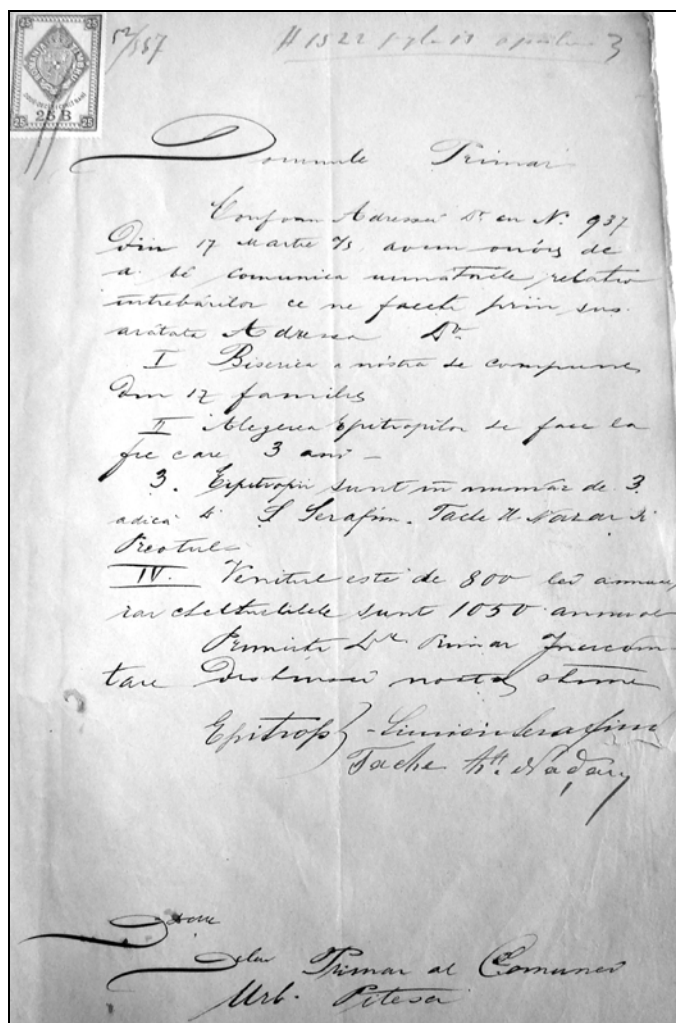 25 25
25 B
25 25
52/557
# 1522
Domnule Primar
Conform Adressei Dv. cu N. 937
Din 17 Martie 73, avem onóre de
a vĕ comunica urmatórele, relativ
intrebărilor ce ne faceti prin sus
arătata Adressa Dv.
I Biserica nóstra se compune
Din 12 familii
II Alegerea Epitropilor se face la
fie care 3 ani –
3. Epitropii sunt in număr de 3.
adică D. S. Serafim. Tache H. Nazar si
Preotul
IV. Venitul este de 800 lei annual,
iar cheltuelile sunt 1050 annual
Primiti Dle Primar Incredin-
tare Distinsei nostre stime
Epitropi – Simion Serafim
Tache H.
Domnu
lui Primar al Comunei
Urb. Pitesci